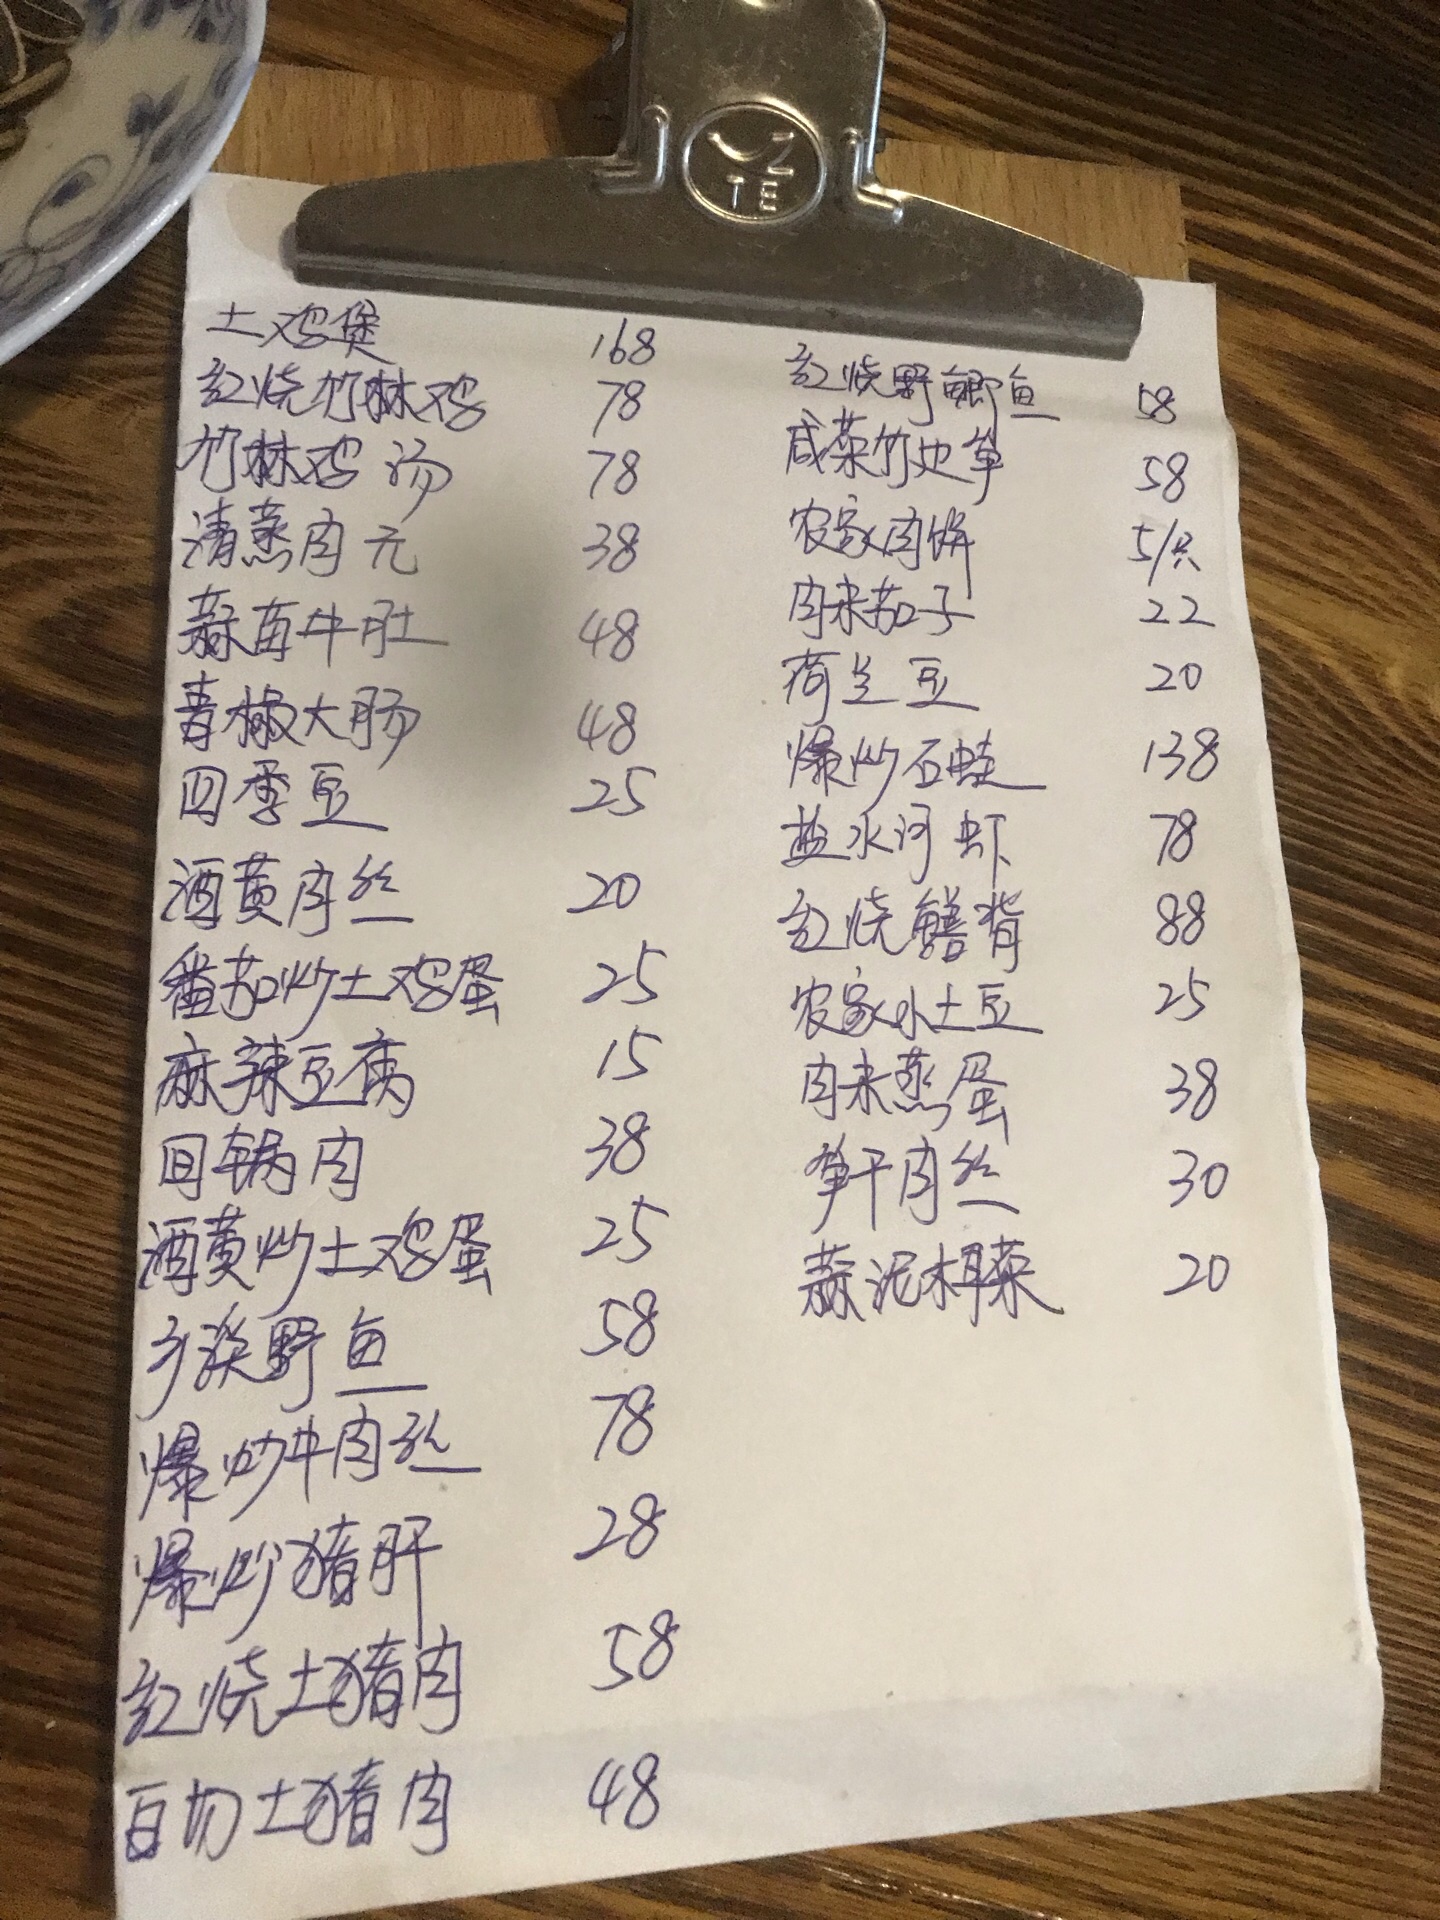 Z
TE
土鸡煲 168
红烧竹林鸡 78
竹林鸡汤 78
清蒸肉元 38
蒜苗牛肚 48
青椒大肠 48
四季豆 25
酒黄肉丝 20
番茄炒土鸡蛋 25
麻辣豆腐 15
回锅肉 38
酒黄炒土鸡蛋 25
野鱼 58
爆炒牛肉丝 78
爆炒猪肝 28
红烧土猪肉 58
白切土猪肉 48
红烧野鲫鱼 58
咸菜竹 58
农家肉饼 5/只
肉末茄子 22
荷兰豆 20
爆炒石蛙 138
盐水河虾 78
红烧鳝背 88
农家小土豆 25
肉末蒸蛋 38
笋干肉丝 30
蒜泥木耳菜 20